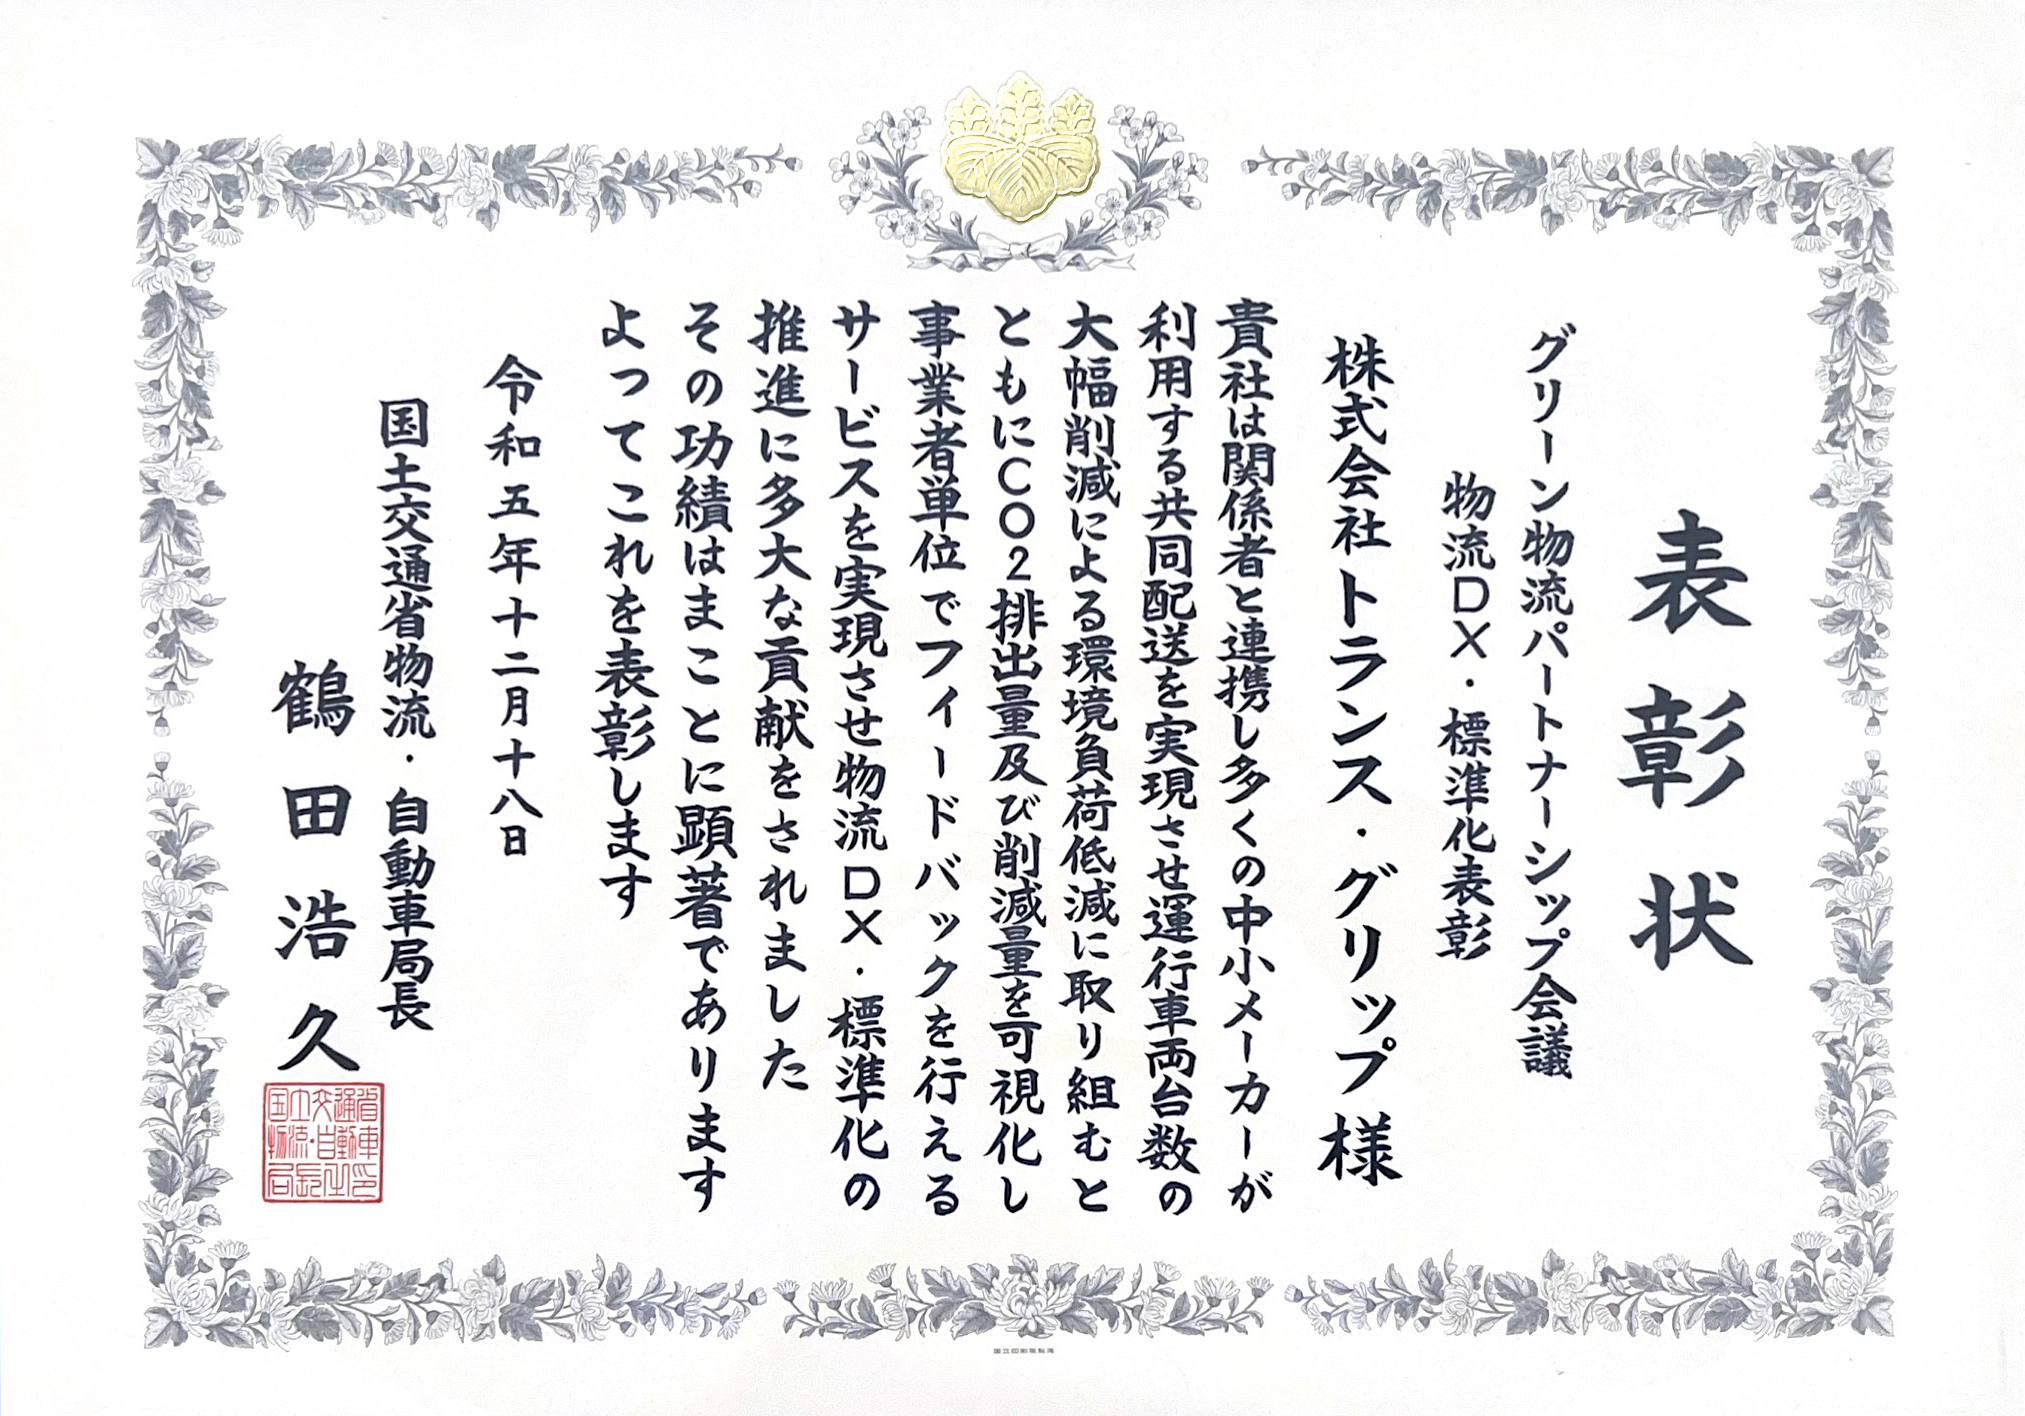 表彰状
グリーン物流パートナーシップ会議
物流DX・標準化表彰
株式会社トランス・グリップ様
貴社は関係者と連携し多くの中小メーカーが
利用する共同配送を実現させ運行車両台数の
大幅削減による環境負荷低減に取り組むと
ともにCO2排出量及び削減量を可視化し
事業者単位でフィードバックを行える
サービスを実現させ物流DX・標準化の
推進に多大な貢献をされました
その功績はまことに顕著であります
よってこれを表彰します
令和五年十二月十八日
国土交通省物流・自動車局長
鶴田浩久
国立印刷局製造